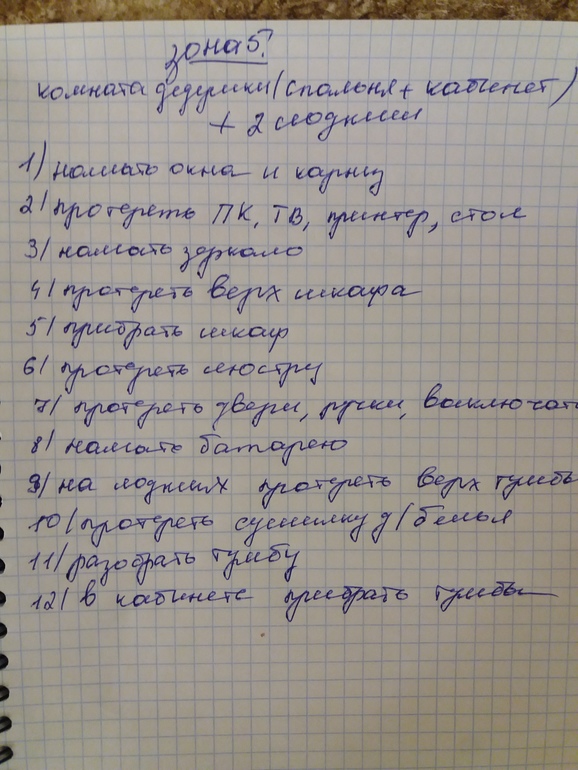 зона 5.
комната Федерики (спальня + кабинет)
+ 2 лоджии
1) помыть окна и карниз
2) протереть ПК, ТВ, принтер, стол
3) помыть зеркало
4) протереть верх шкафа
5) прибрать шкаф
6) протереть люстру
7) протереть двери, ручки, включат
8) помыть батарею
9) на лоджиях протереть верх тумбы
10) протереть сушилку д/белья
11) разобрать тумбу
12) в кабинете прибрать тумбы